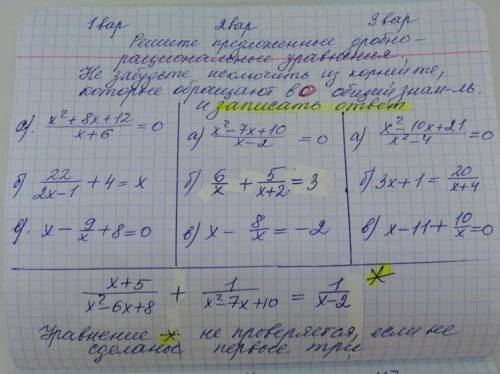 1 вар 2 вар 3 вар
Решите предложенные дробно-
рациональные уравнения,
Не забудьте исключить из корней те,
которые обращают в 0 общий знам-ль.
и записать ответ
а). (x²+8x+12)/(x+6) = 0
а) (x²-7x+10)/(x-2) = 0
а) (x²-10x+21)/(x²-4) = 0
б) 22/(2x-1) + 4 = x
б) 6/x + 5/(x+2) = 3
б) 3x+1 = 20/(x+4)
в). x - 9/x + 8 = 0
в) x - 8/x = -2
в) x - 11 + 10/x = 0
(x+5)/(x²-6x+8) + 1/(x²-7x+10) = 1/(x-2) *
Уравнение * не проверяется, если не
сделаны первые три